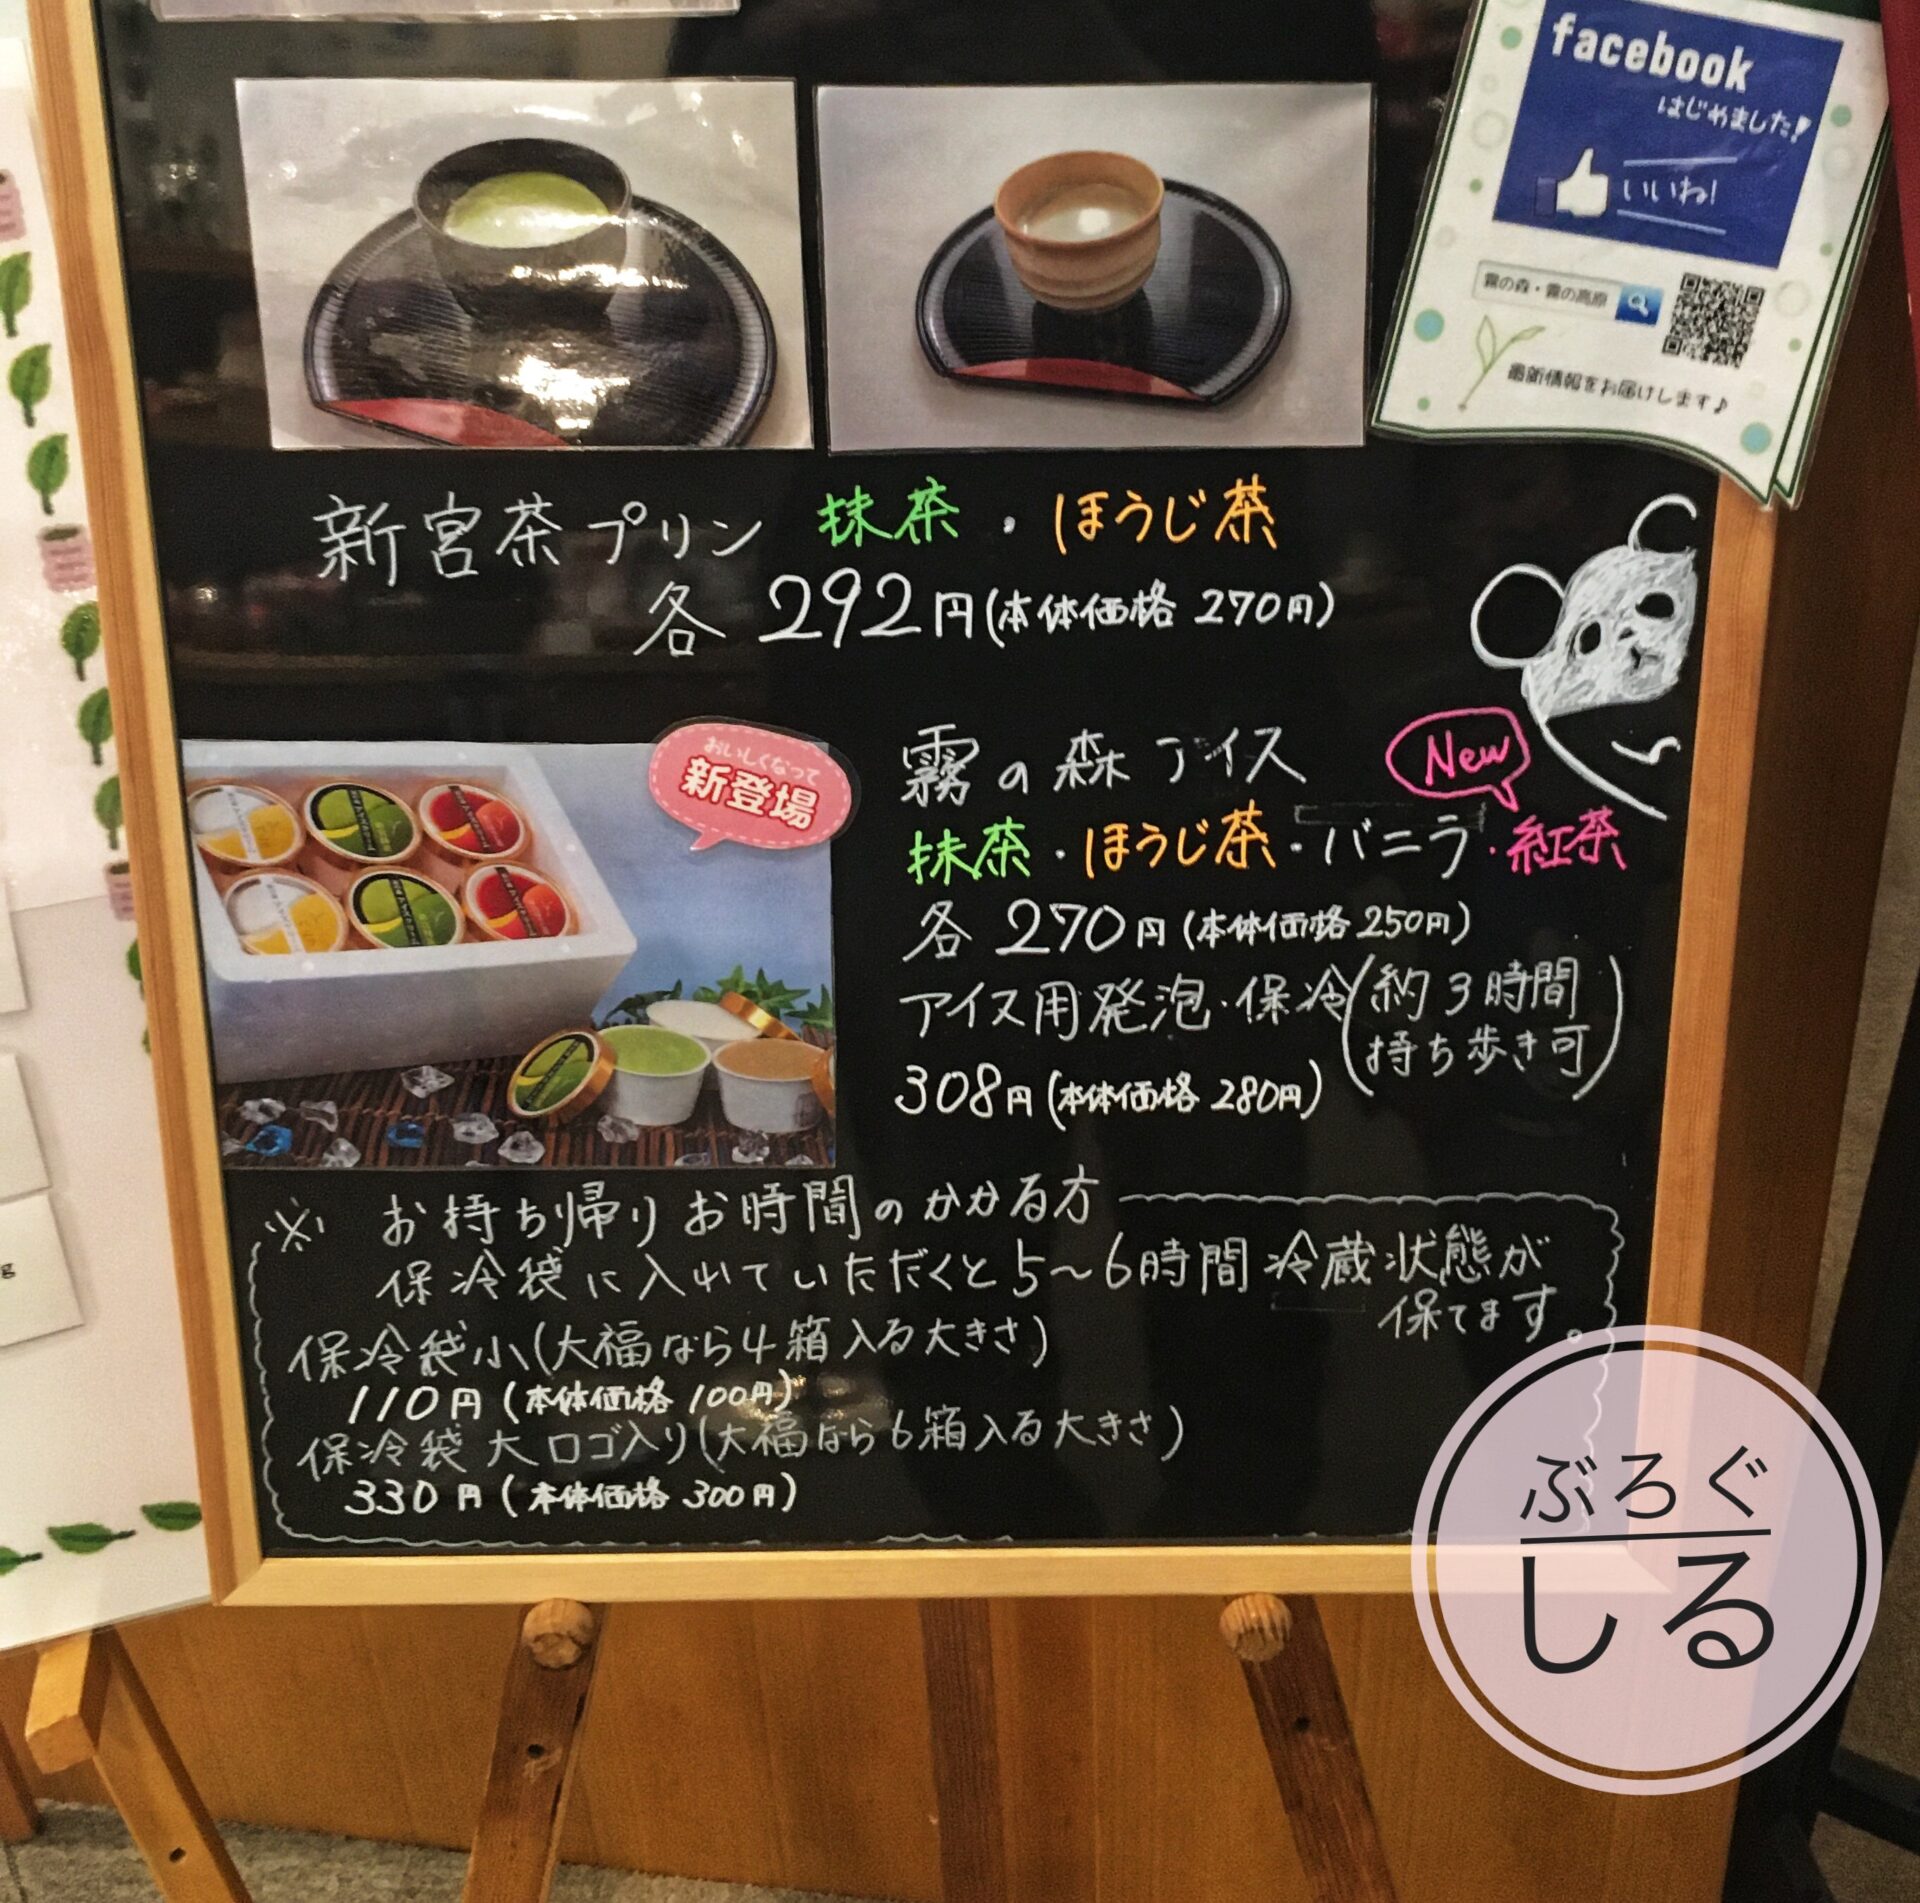 facebook
はじめました!
いいね!
霧の森・霧の高原
最新情報をお届けします♪
新宮茶プリン 抹茶・ほうじ茶
各 292円(本体価格 270円)
おいしくなって
新登場
霧の森アイス
New
抹茶・ほうじ茶・バニラ・紅茶
各 270円(本体価格 250円)
アイス用発泡・保冷(約3時間
持ち歩き可)
308円(本体価格 280円)
※ お持ち帰りお時間のかかる方
保冷袋に入れていただくと5~6時間冷蔵状態が
保てます。
保冷袋小(大福なら4箱入る大きさ)
110円(本体価格 100円)
保冷袋 大 ロゴ入り(大福なら6箱入る大きさ)
330円(本体価格 300円)
ぶろぐ
しる